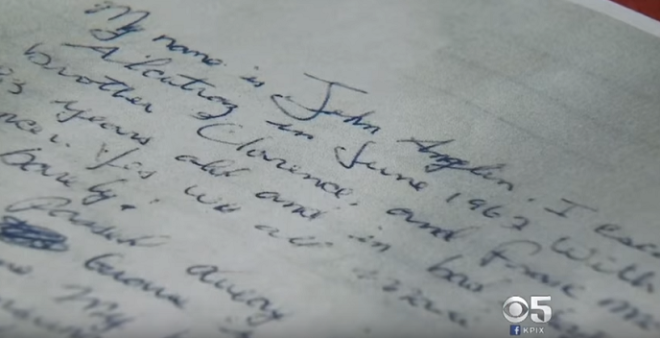 My name is John Anglin. I esca
Alcatraz in June 1962 with
brother Clarence, and Frank Mo
3 years old and in bad
ncer. Yes we all
barely.
passed away
my
5
f KPIX